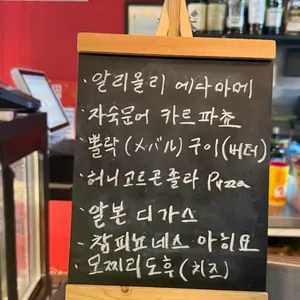 · 알리올리 에다마메
· 자숙문어 카르파쵸
· 뽈락 (メバル) 구이 (버터)
· 허니고르곤졸라 Pizza
· 알본 디가스
· 참피뇨네스 아히요
· 모찌리도후 (치즈)